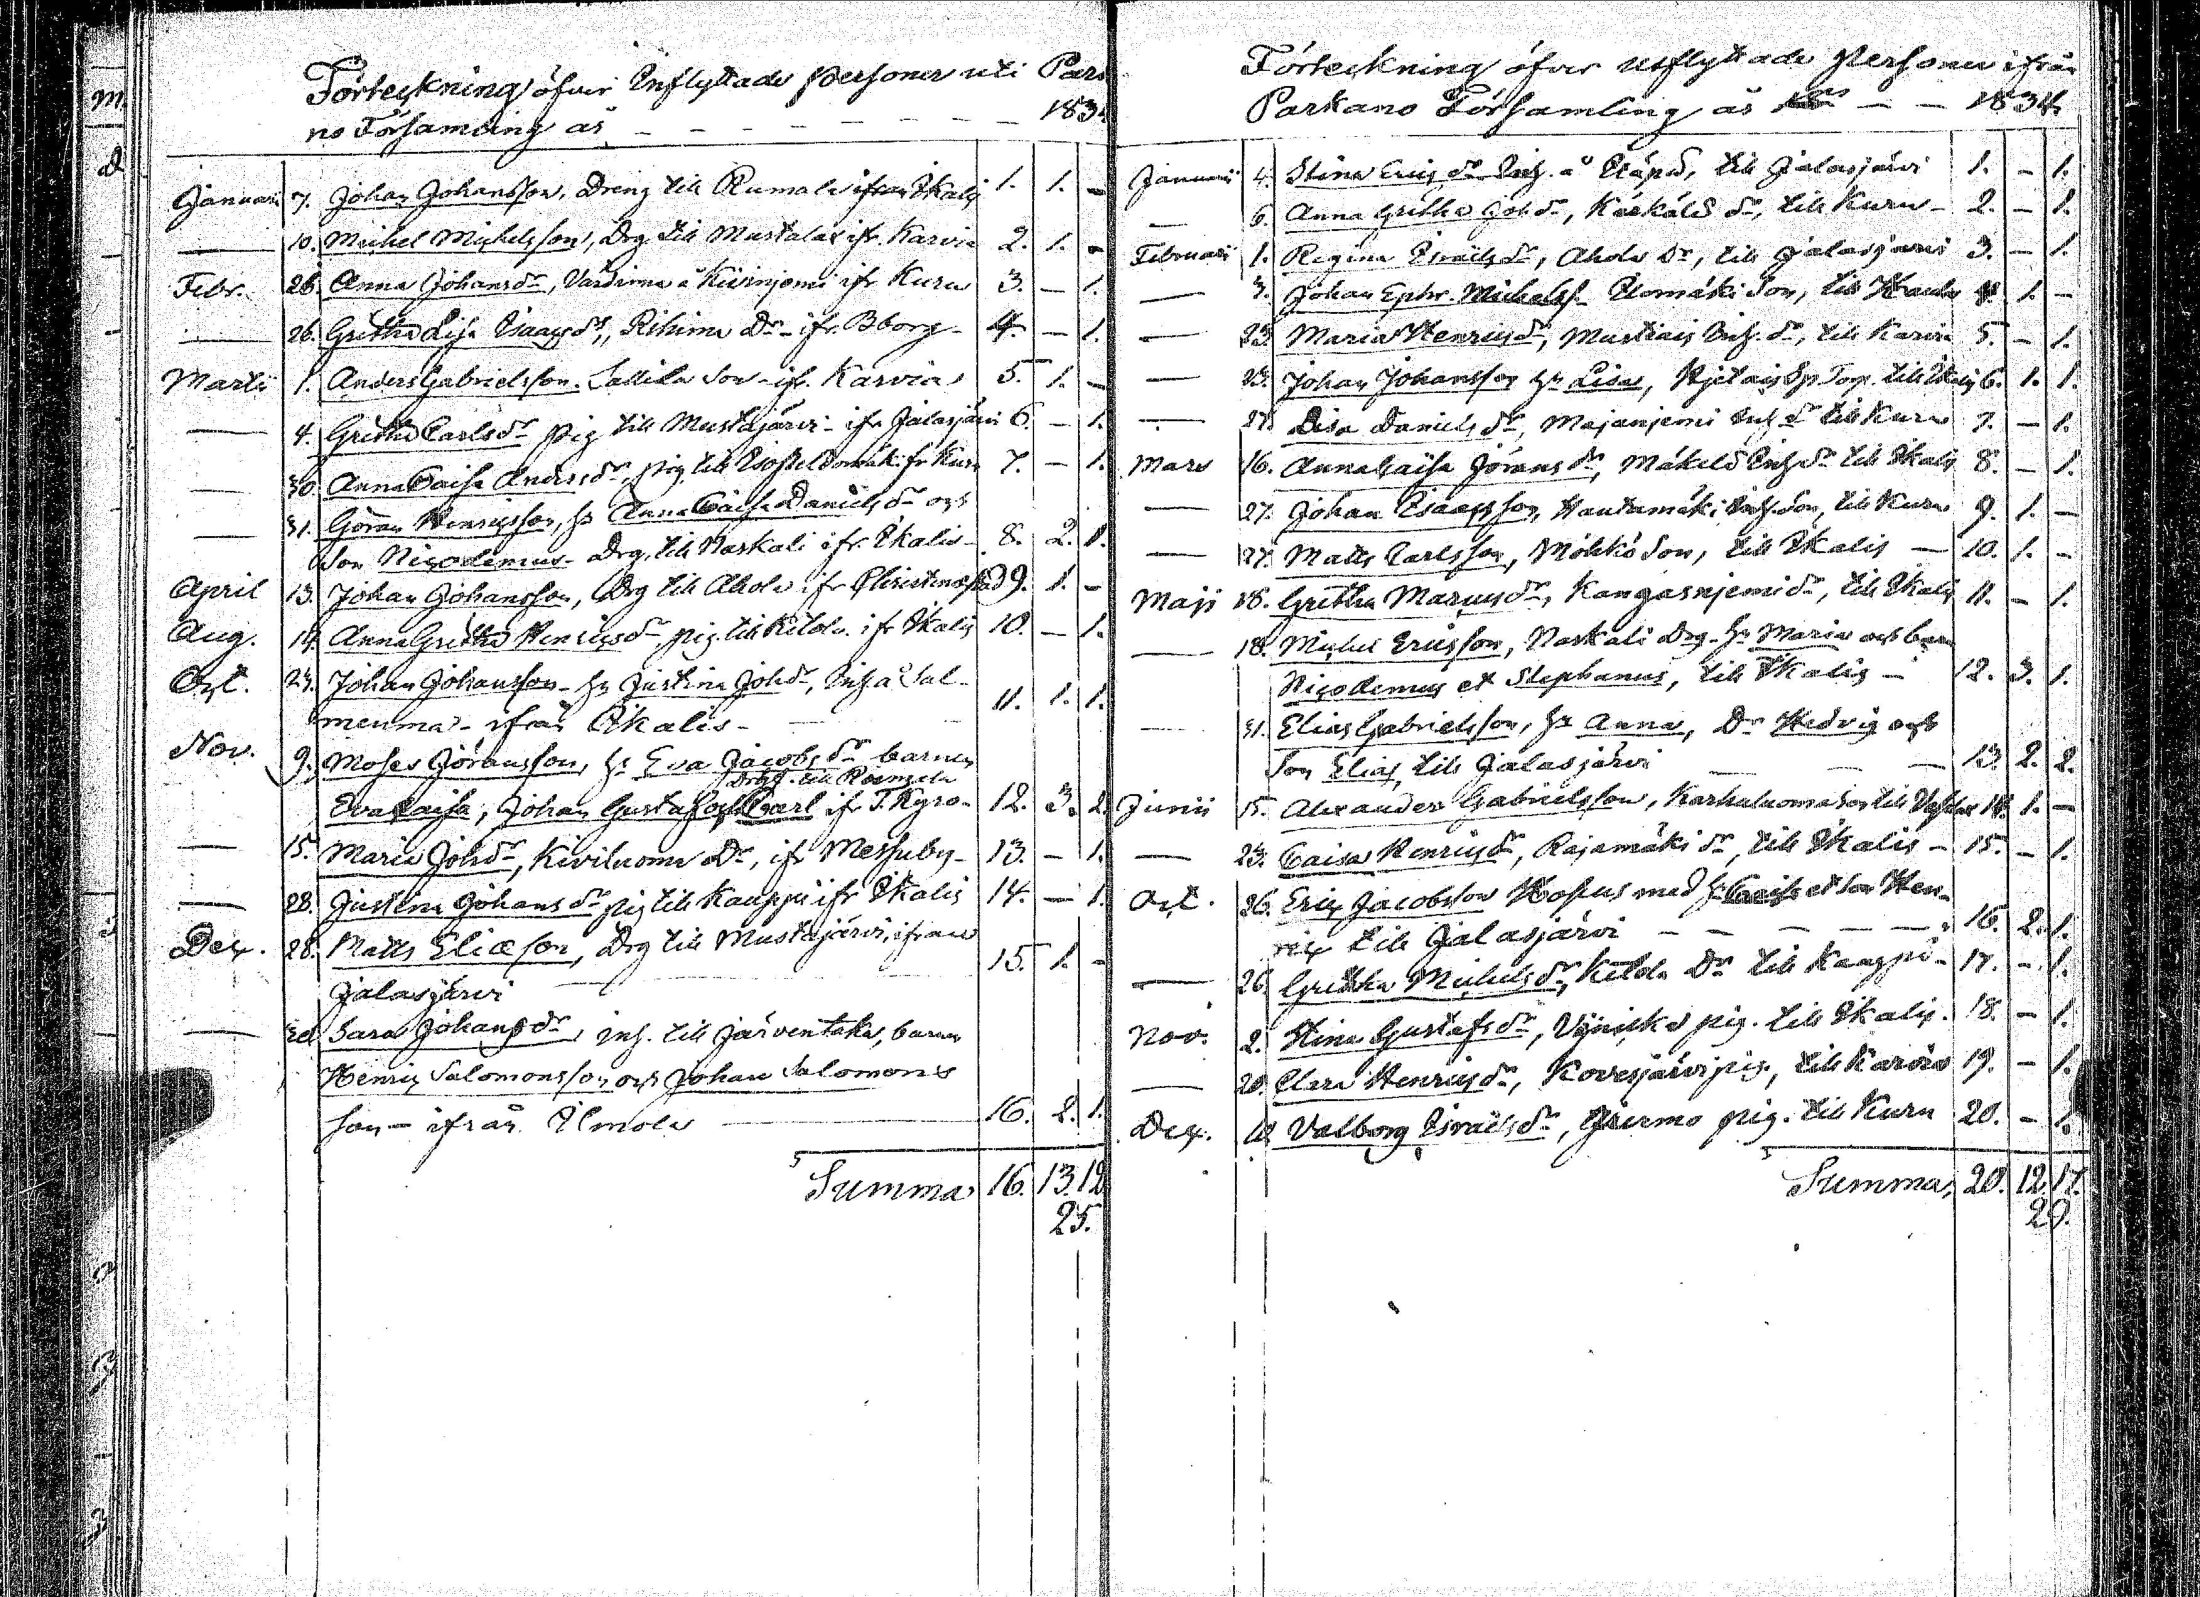 Förteckning öfver Inflyttade personer uti Par
no Församling år - - - - - - - 183
Januari 7. Johan Johansson, Dreng till Rumala ifrån Ikalis 1. 1. -
— 10. Michel Michelsson, Drg till Mustalax ifr. Karvia 2. 1. -
Febr. 26. Anna Johansdr, å ifr Kuru 3. - 1.
— 26. Gretha Lisa Isaacsdr, Dr - ifr. Bborg - 4. - 1.
Martii 1. Anders Gabrielsson. Sallila Son - ifr. Karvia 5. 1. -
— 4. Gretha Carlsdr pig till Mustajärvi - ifr Jalasjärvi 6. - 1.
— 30. Anna Caisa Andersdr, pig till fr Kuru 7. - 1.
— 31. Göran Henricsson, hr Anna Caisa Danielsdr och
Son Nicodemus - Drg. till Raskali ifr. Ikalis - 8. 2. 1.
April 13. Johan Johansson, Drg till Ahola ifr Christinestad 9. 1. -
Aug. 14. Anna Gretha Henricsdr pig till Kitola. ifr Ikalis 10. - 1.
Oct. 23. Johan Johansson - hr Justina Johdr, Inh å Sal-
menmaa - ifrån Ikalis - 11. 1. 1.
Nov. 9. Moses Göransson, hr Eva Jacobsdr barnen
till
Eva Caisa, Johan Gustaf och Carl ifr T.Kyro - 12. 3. 2.
— 15. Maria Johdr, Kiviluoma Dr, ifr Messuby - 13. - 1.
— 28. Justina Johansdr pig till Kauppi ifr Ikalis 14. - 1.
Dec. 28. Matts Eliæson, Drg till Mustajärvi, ifrån
Jalasjärvi 15. 1. -
— Sara Johansdr, inh. till Järventaka, barnen
Henric Salomonsson och Johan Salomons
son - ifrån Ilmola 16. 2. 1.
Summa 16. 13. 12
25.
Förteckning öfver utflyttade personer ifrån
Parkano Församling år - - 1834.
Januarii 4. Stina Ericsdr Inh. å till Jalasjärvi 1. - 1.
— 6. Anna Gretha Johdr, Käckälä dr, till Kuru - 2. - 1.
Februarii 1. Regina Israelsdr, Ahola Dr, till Jalasjärvi 3. - 1.
— 3. Johan Ephr. Michelss. Uomäki Son, till 4. 1. -
— 23. Maria Henricsdr, Inh. dr, till Karvia 5. - 1.
— 23. Johan Johansson hr Lisa, Torp. till Ikalis 6. 1. 1.
— 27. Disa Danielsdr, Majanjemi Inh dr till Kuru 7. - 1.
Mars 16. Anna Caisa Göransdr, Mäkelä Inh dr till Ikalis 8. - 1.
— 27. Johan Isaacsson, Hautamäki Inh. Son, till Kuru 9. 1. -
— 27. Matts Carlsson, Son, till Ikalis — 10. 1. -
Maji 18. Gretha Marcusdr, Kangasnjemi dr, till Ikalis 11. - 1.
— 18. Michel Ericsson, Raskali Drg - hr Maria och barn
Nicodemus et Stephanus, till Ikalis - 12. 3. 1.
— 31. Elias Gabrielsson, hr Anna, Dr Hedvig och
Son Elias, till Jalasjärvi - - - 13. 2. 2.
Junii 15. Alexander Gabrielsson, Karhuluoma Son till 14. 1. -
— 23. Caisa Henricsdr, Rajamäki dr, till Ikalis - 15. - 1.
Oct. 26. Eric Jacobsson Hospus med hr Caisa et son Hen-
ric till Jalasjärvi - - - - - 16. 2. 1.
— 26. Gretha Michelsdr, Kitola Dr till 17. - 1.
Nov. 2. Stina Gustafsdr, pig. till Ikalis. 18. - 1.
— 20. Clara Henricsdr, Kovesjärvi pig., till Karvia 19. - 1.
Dec. Valborg Israelsdr, pig. till Kuru 20. - 1.
Summa, 20. 12. 17.
29.